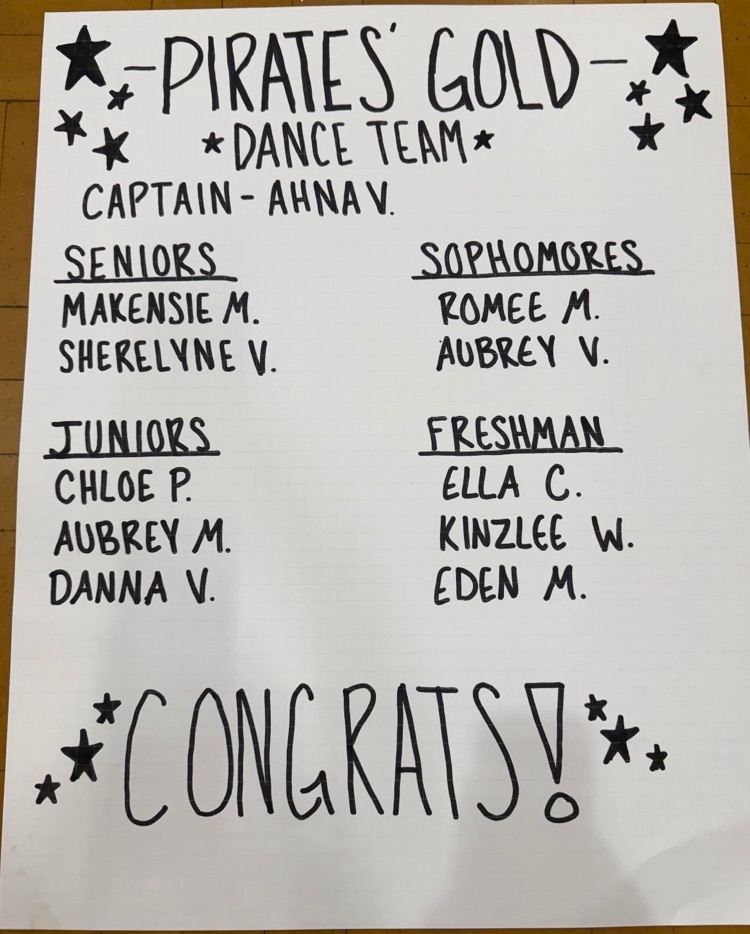 -PIRATES' GOLD-
★DANCE TEAM★
CAPTAIN - AHNA V.
SENIORS
MAKENSIE M.
SHERELYNE V.
SOPHOMORES
ROMEE M.
AUBREY V.
JUNIORS
CHLOE P.
AUBREY M.
DANNA V.
FRESHMAN
ELLA C.
KINZLEE W.
EDEN M.
CONGRATS!